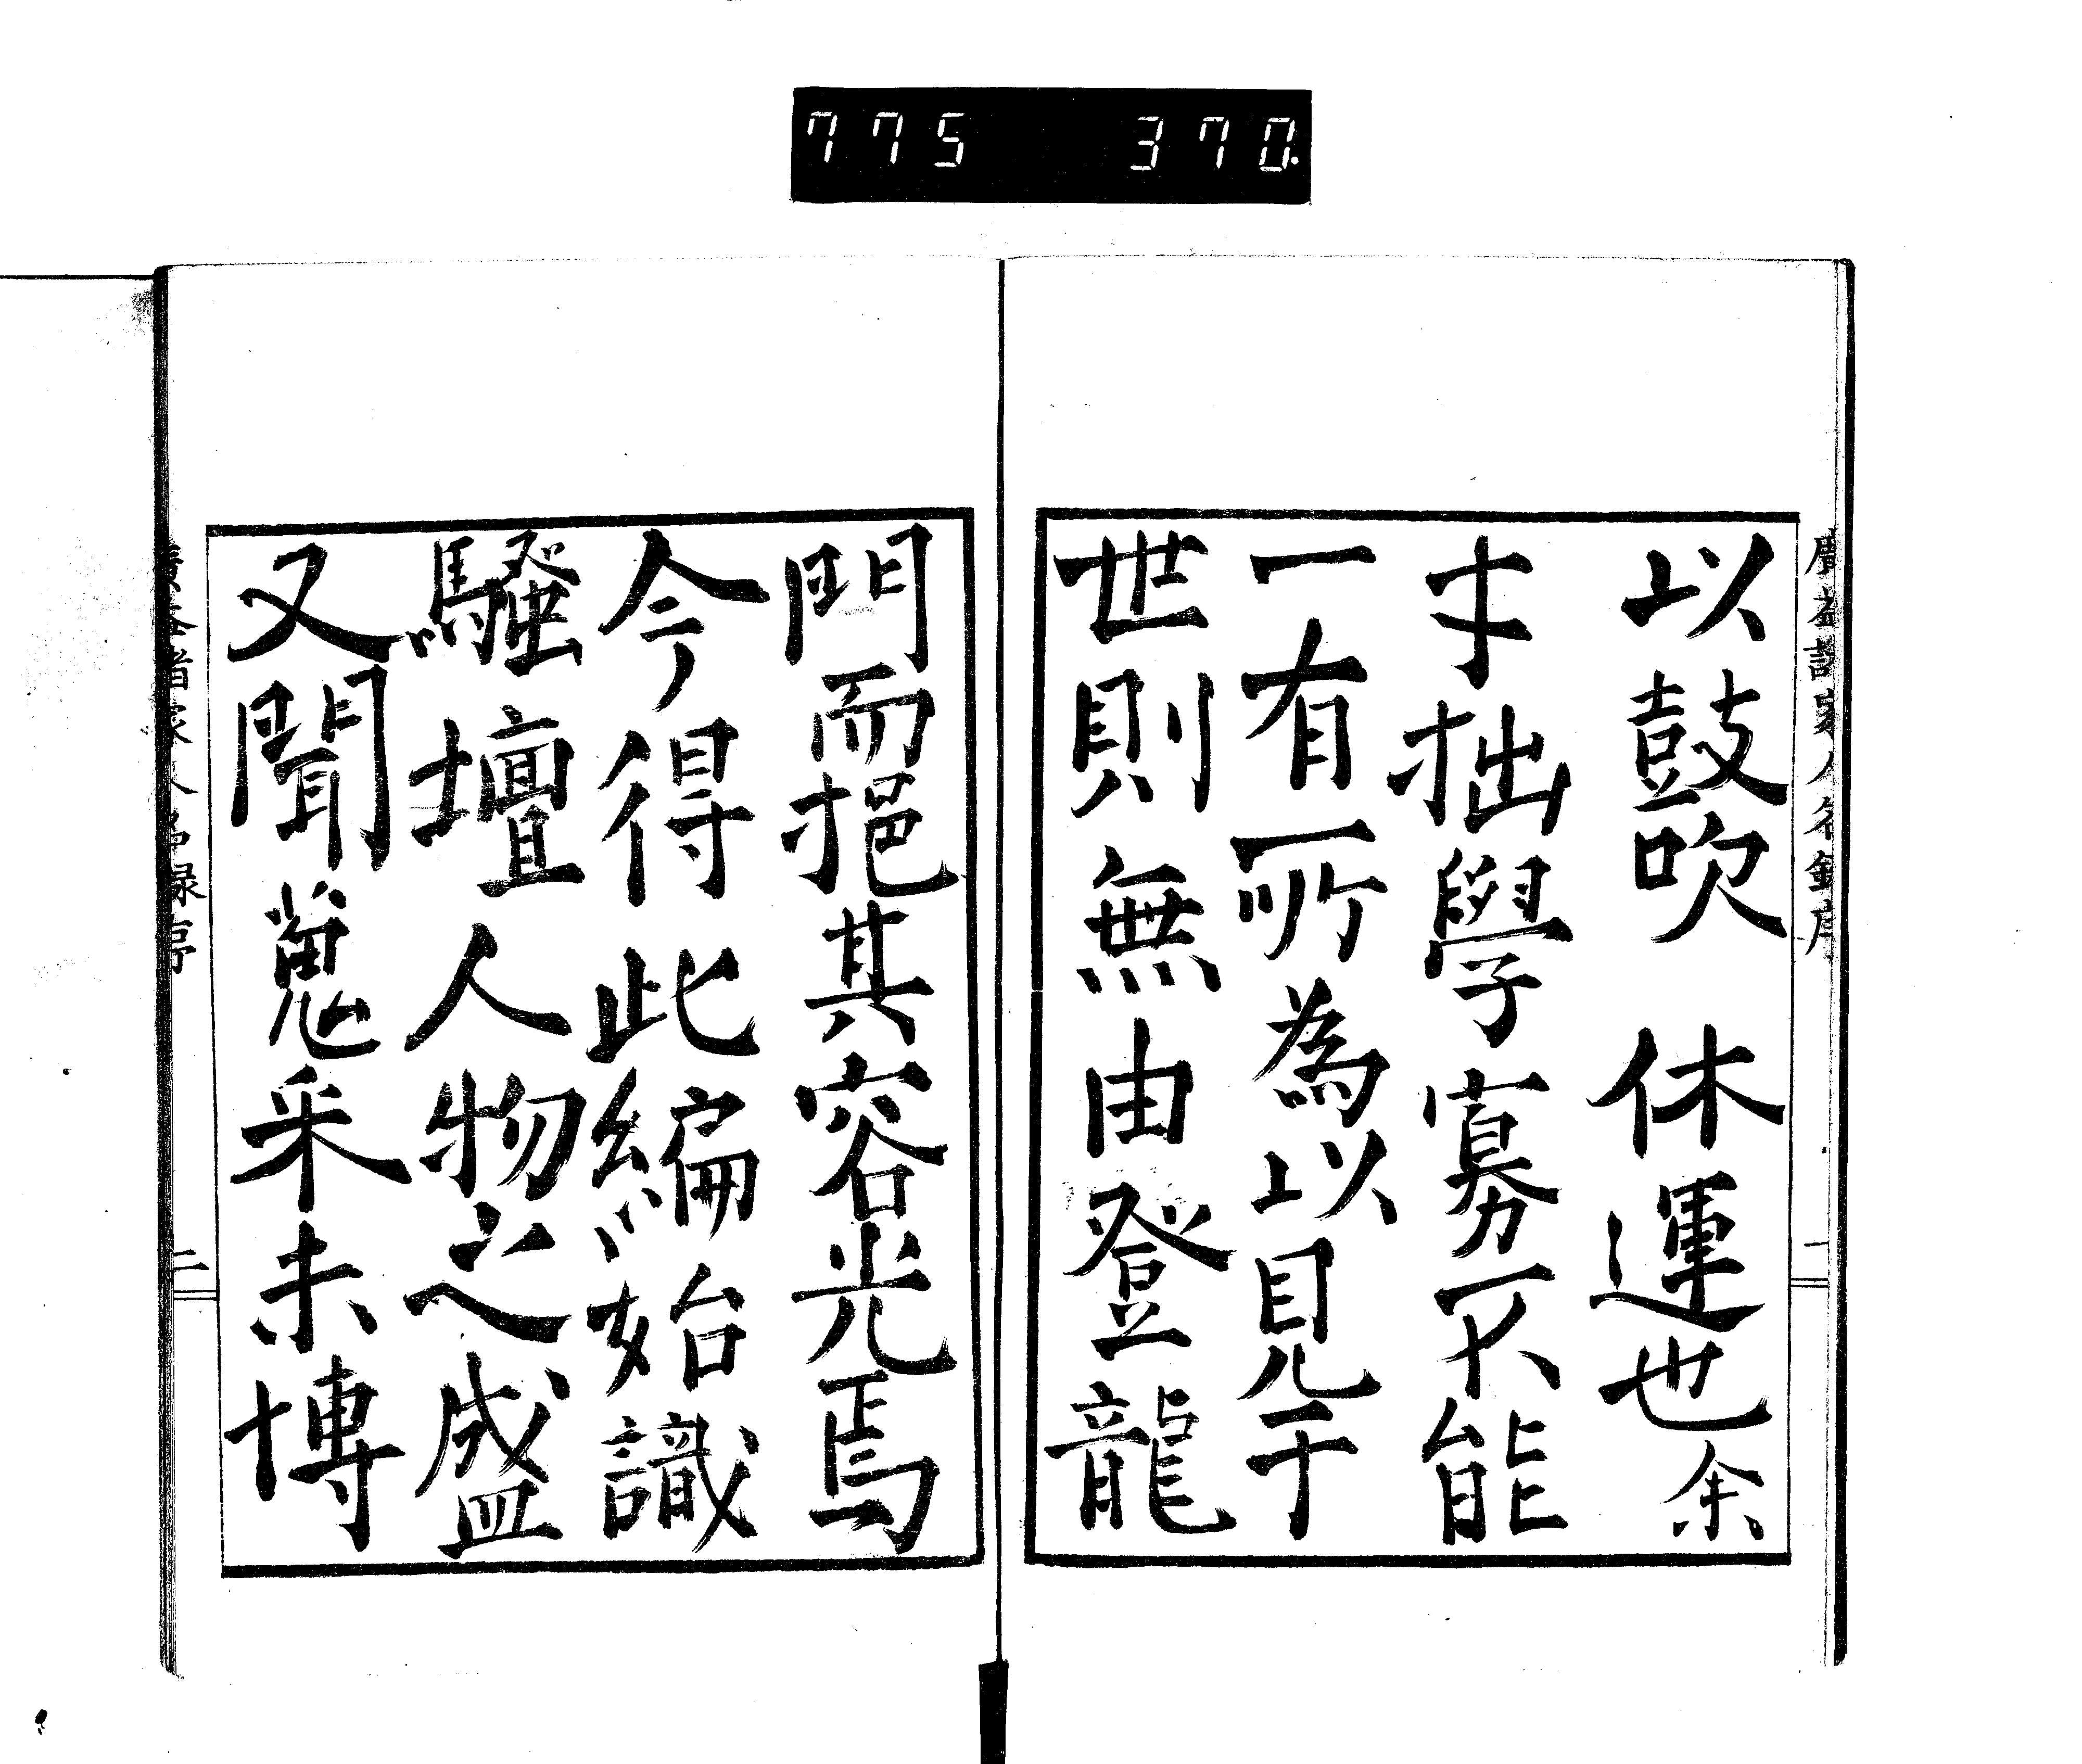 775 370.
廣益諸家人名録序
一
以鼓吹　休運也余
才拙學寡不能
一有所為以見于
世則無由登龍
門而挹其容光焉
今得此編始識
騷壇人物之盛
又聞蒐采未博
廣益諸家人名録序
二